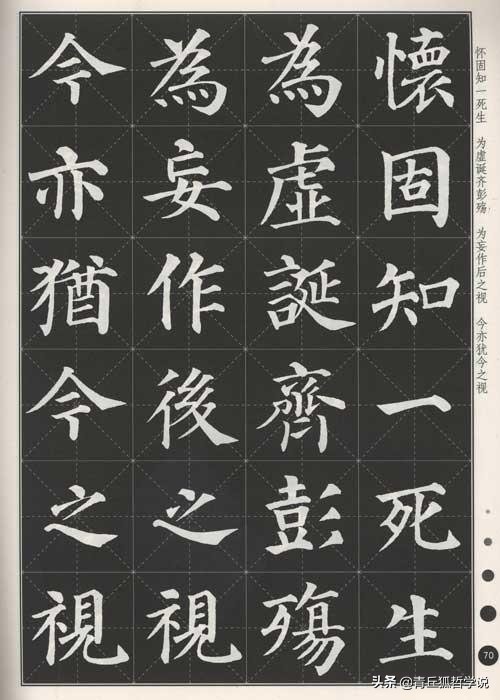 懷固知一死生
為虛誕齊彭殤
為妄作後之視
今亦猶今之視
怀固知一死生 为虚诞齐彭殇 为妄作后之视 今亦犹今之视
70
头条 @青丘狐哲学说